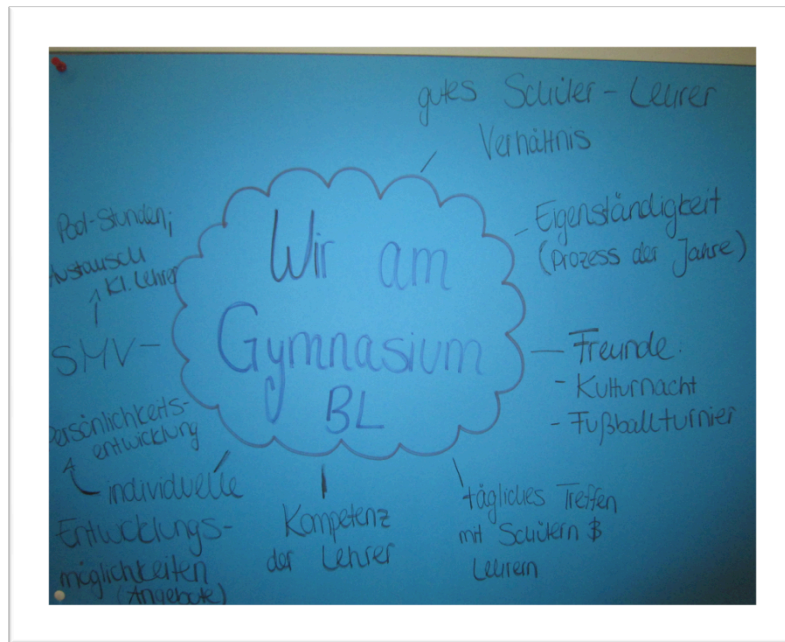 Wir am
Gymnasium
BL
gutes Schüler - Lehrer
Verhältnis
Eigenständigkeit
(Prozess der Jahre)
Freunde:
- Kulturnacht
- Fußballturnier
tägliches Treffen
mit Schülern &
Lehrern
Kompetenz
der Lehrer
individuelle
Entwicklungs-
möglichkeiten
(Angebote)
Persönlichkeits-
entwicklung
SMV
Pool-Stunden;
Austausch
Kl. Lehrer